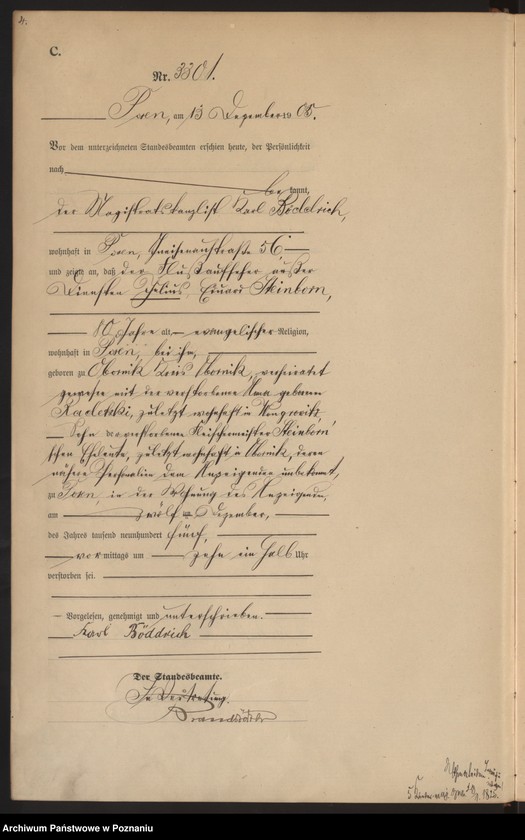 4.
C.
Nr. 3301.
Posen, am 13 Dezember 19 05.
Vor dem unterzeichneten Standesbeamten erschien heute, der Persönlichkeit
nach
be kannt,
der Magistratskanzlist Karl Böddrich,
wohnhaft in Posen, Gneisenaustraße 5
und zeigte an, daß der außer
Diensten Julius, Eduard Steinborn,
80 Jahre alt, evangelischer Religion,
wohnhaft in Posen, bei ihm,
geboren zu Obornik Kreis Obornik, verheiratet
gewesen mit der verstorbenen geborenen
zuletzt wohnhaft in Wongrowitz,
Sohn der verstorbenen Fleischermeister Steinborn'
schen Eheleute, zuletzt wohnhaft in Obornik, deren
nähere Personalien dem Anzeigenden unbekannt,
zu Posen, in der Wohnung des Anzeigenden,
am zwölften Dezember,
des Jahres tausend neunhundert fünf,
vormittags um zehn ein halb Uhr
verstorben sei.
Vorgelesen, genehmigt und unterschrieben.
Karl Böddrich
Der Standesbeamte.
In Vertretung.
5
Archiwum Państwowe w Poznaniu